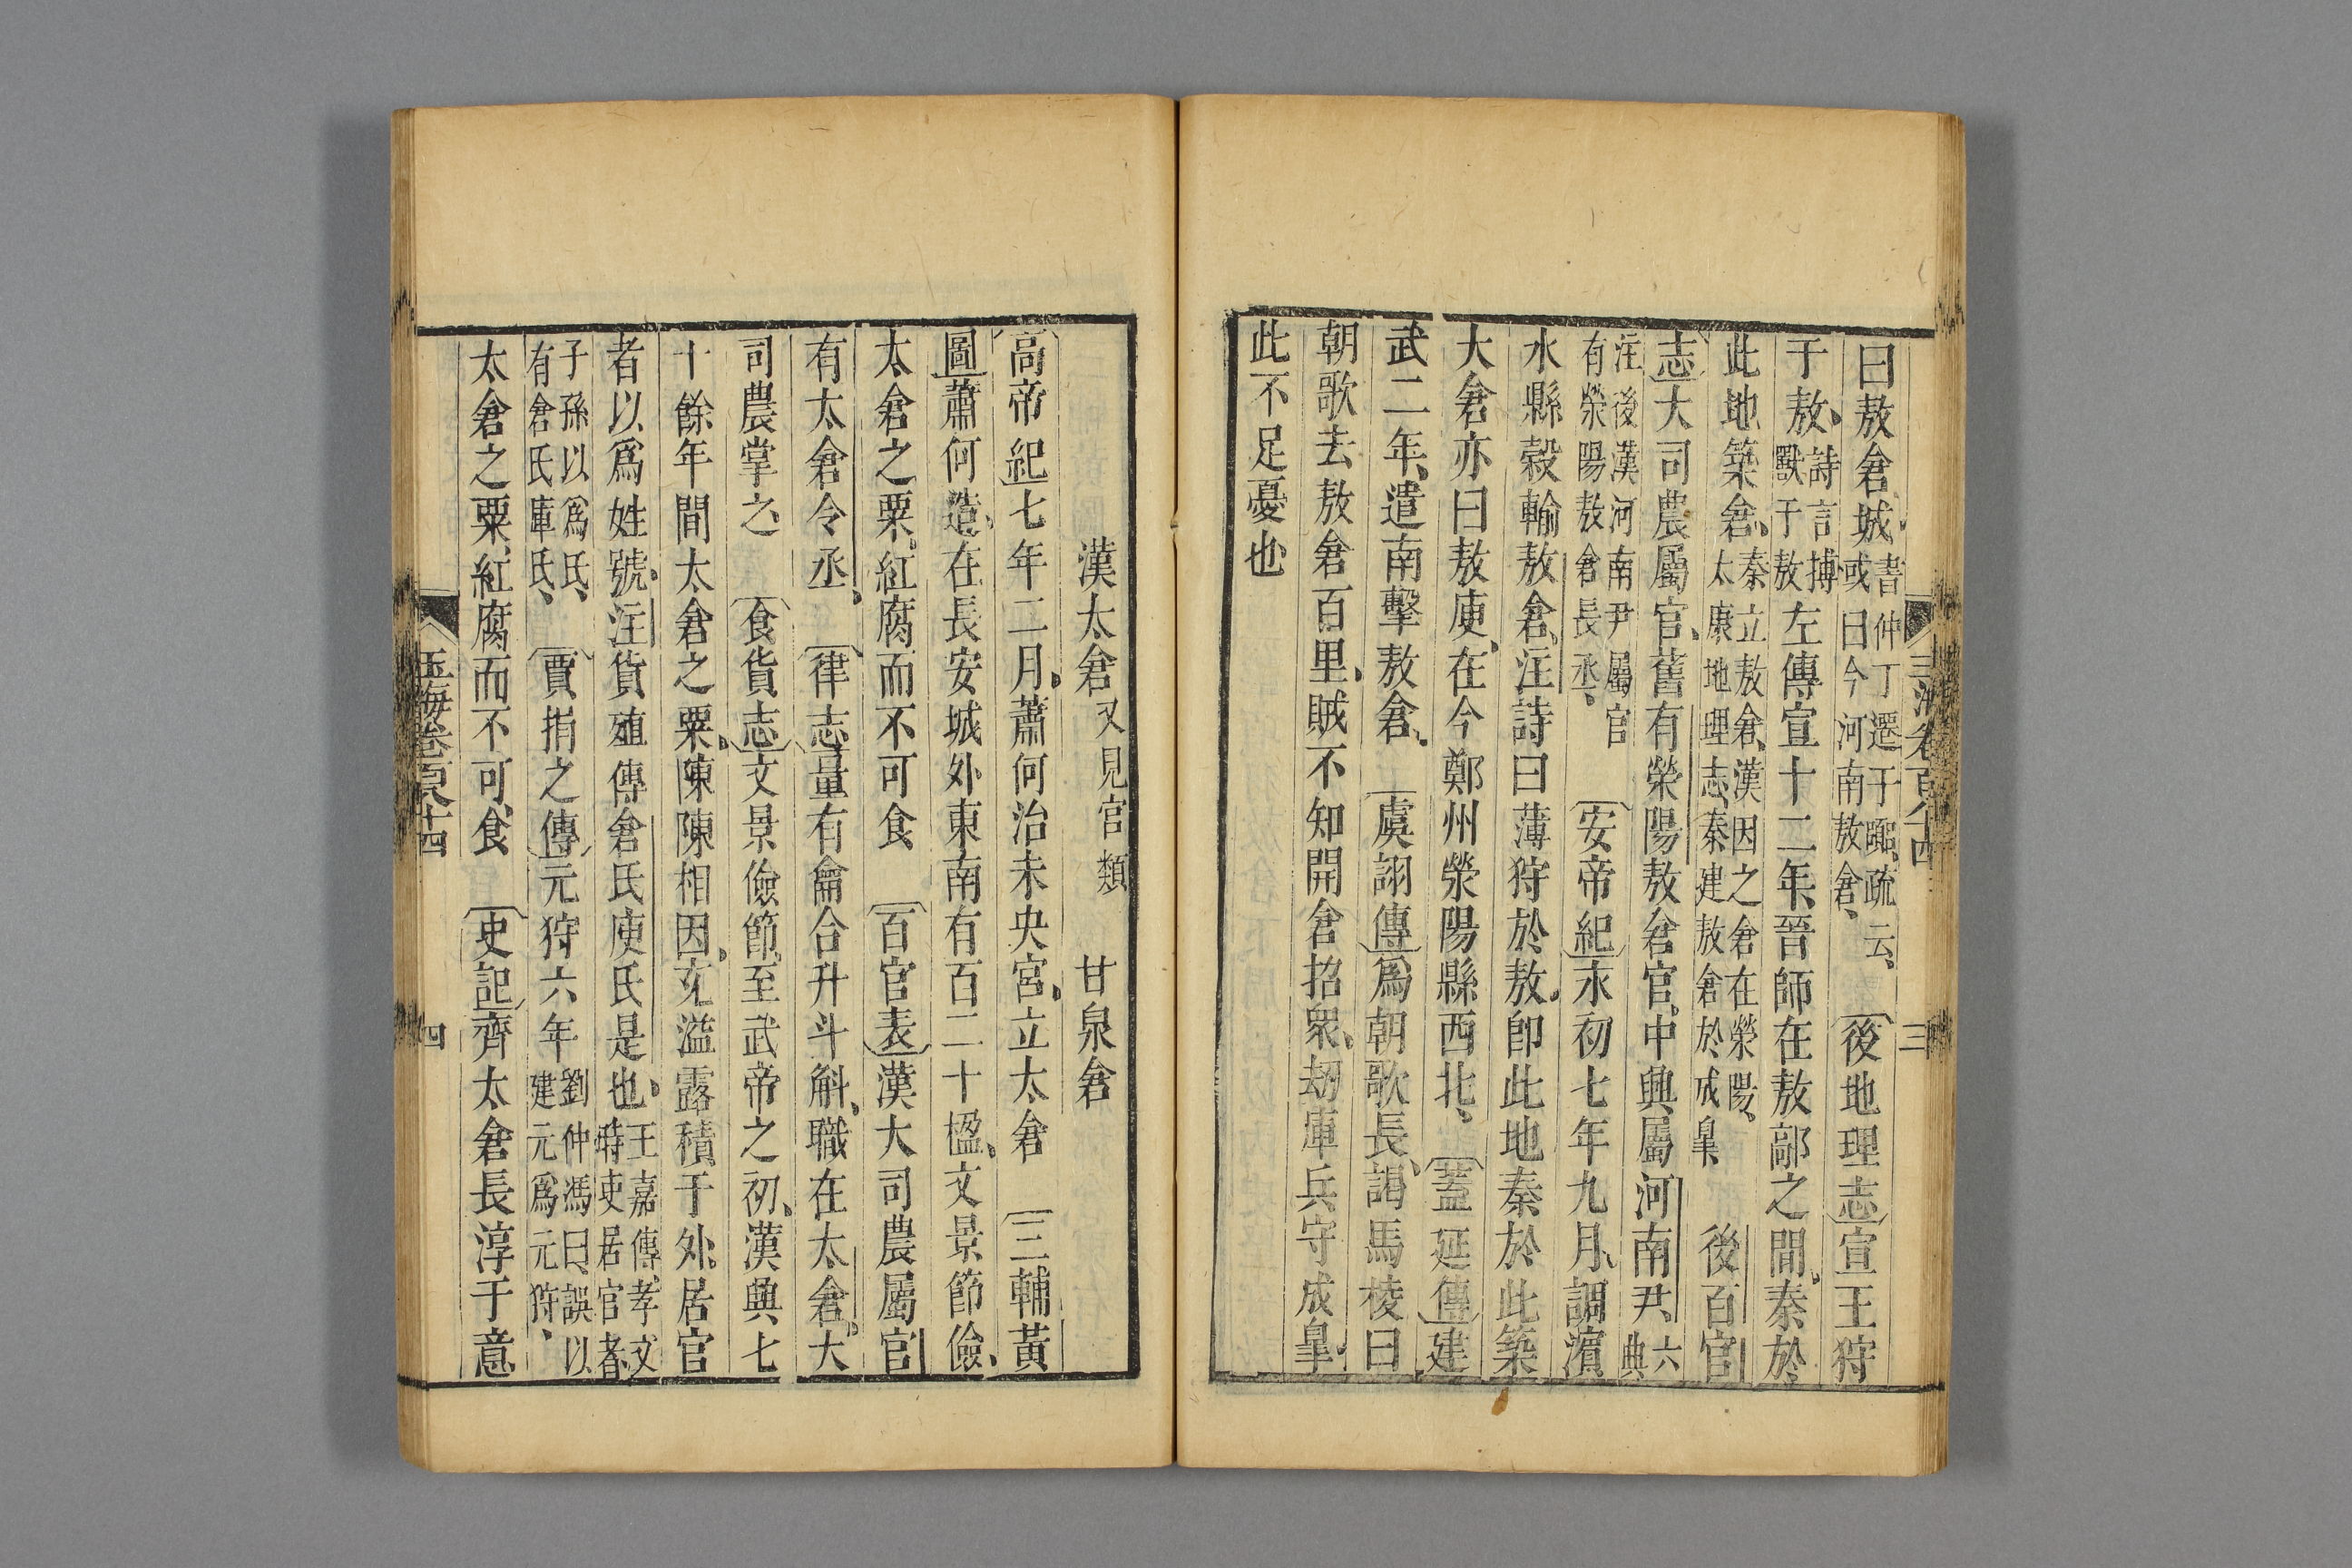 曰敖倉城書仲丁遷于囂疏云或曰今河南敖倉後地理志宣王狩
于敖詩言搏獸于敖左傳宣十二年晉師在敖鄗之間秦於
此地築倉秦立敖倉漢因之倉在滎陽太康地理志秦建敖倉於成皐後百官
志大司農屬官舊有滎陽敖倉官中興屬河南尹六典
注後漢河南尹屬官有滎陽敖倉長丞安帝紀永初七年九月調濱
水縣穀輸敖倉注詩曰薄狩於敖即此地秦於此築
大倉亦曰敖庾在今鄭州滎陽縣西北蓋延傳建
武二年遣南擊敖倉虞詡傳為朝歌長謁馬棱曰
朝歌去敖倉百里賊不知開倉招衆劫庫兵守成皐
此不足憂也
玉海卷百八十四 三
漢太倉又見官類 甘泉倉
高帝紀七年二月蕭何治未央宮立太倉三輔黃
圖蕭何造在長安城外東南有百二十楹文景節儉
太倉之粟紅腐而不可食百官表漢大司農屬官
有太倉令丞律志量有龠合升斗斛職在太倉大
司農掌之食貨志文景儉節至武帝之初漢興七
十餘年間太倉之粟陳陳相因充溢露積于外居官
者以爲姓號注貨殖傳倉氏庾氏是也王嘉傳孝文時吏居官者
子孫以爲氏有倉氏庫氏賈捐之傳元狩六年劉仲馮曰誤以建元爲元狩
太倉之粟紅腐而不可食史記齊太倉長淳于意
玉海卷百八十四 四